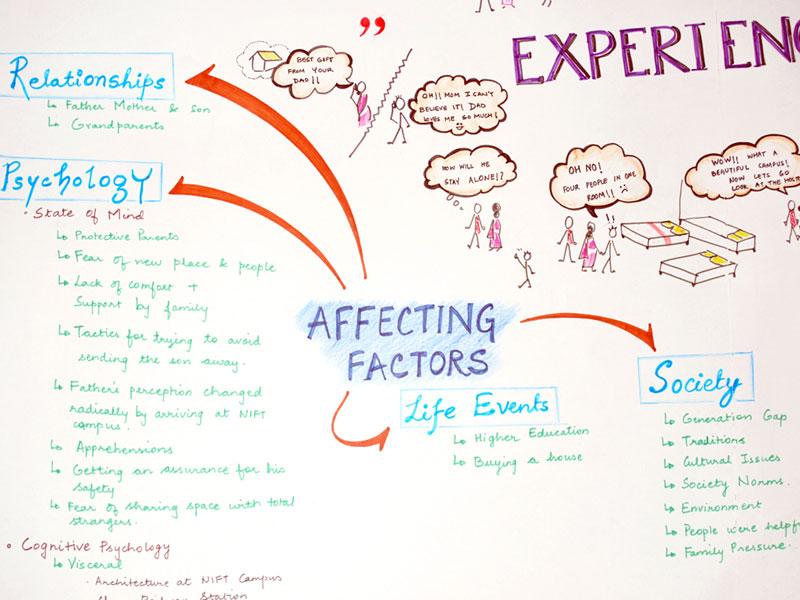 EXPERIEN
BEST GIFT
FROM YOUR
DAD!!
OH!! MOM I CAN'T
BELIEVE IT! DAD
LOVES ME SO MUCH!
HOW WILL HE
STAY ALONE!?
OH NO!
FOUR PEOPLE IN ONE
ROOM!!
!!
WOW!! WHAT A
BEAUTIFUL CAMPUS!
NOW LETS GO
LOOK AT THE
Relationships
Father Mother & son
Grandparents
Psychology
• State of Mind
Protective Parents
Fear of new place & people
Lack of comfort +
Support by family
Tactics for trying to avoid
sending the son away.
Father's perception changed
radically by arriving at NIFT
campus.
Apprehensions
Getting an assurance for his
safety
Fear of sharing space with total
strangers.
• Cognitive Psychology
Visceral
• Architecture at NIFT Campus
Railway Station
AFFECTING
FACTORS
Life Events
Higher Education
Buying a house
Society
Generation Gap
Traditions
Cultural Issues
Society Norms.
Environment
People were helpf
Family Pressure.